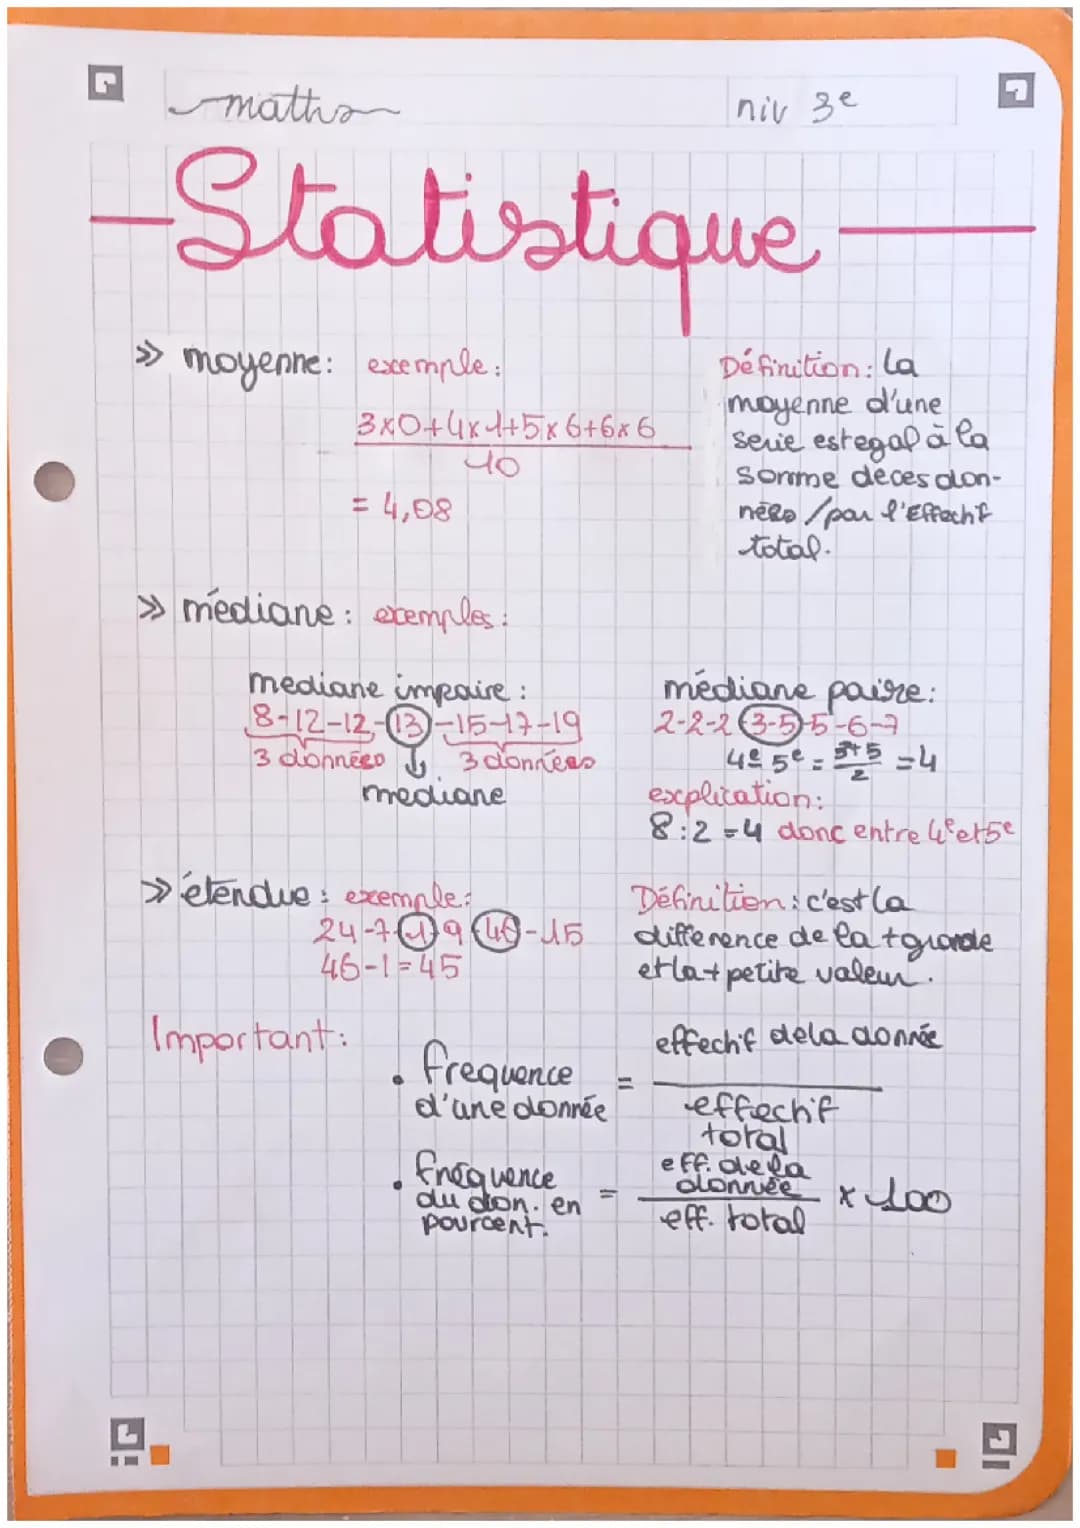 maths
niv 3e
Statistique
>> moyenne: exemple:
3x0+4x1+5x6+6x6
10
= 4,08
Définition: La
moyenne d'une
serie est egal à la
somme de ces don-
nées / par l'Effectif
total.
>> médiane: exemples:
mediane impaire:
8-12-12-13-15-17-19
3 données 3 données
mediane
médiane paire:
2-2-2 3-5-5-6-7
4e 5e = 3+5/2 = 4
explication:
8:2=4 donc entre 4e et 5e
>> étendue: exemple:
24-7-1-9 46-15
46-1=45
Définition: c'est la
difference de la + grande
et la + petite valeur.
Important:
. frequence
d'une donnée
=
effectif de la donnée
effectif
total
. fréquence
du don. en
pourcent.
=
eff. de la
donnée
eff. total
x 100